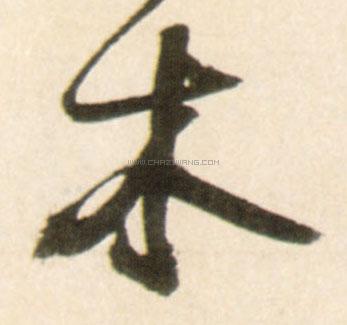 朱
WWW.CHAZIWANG.COM